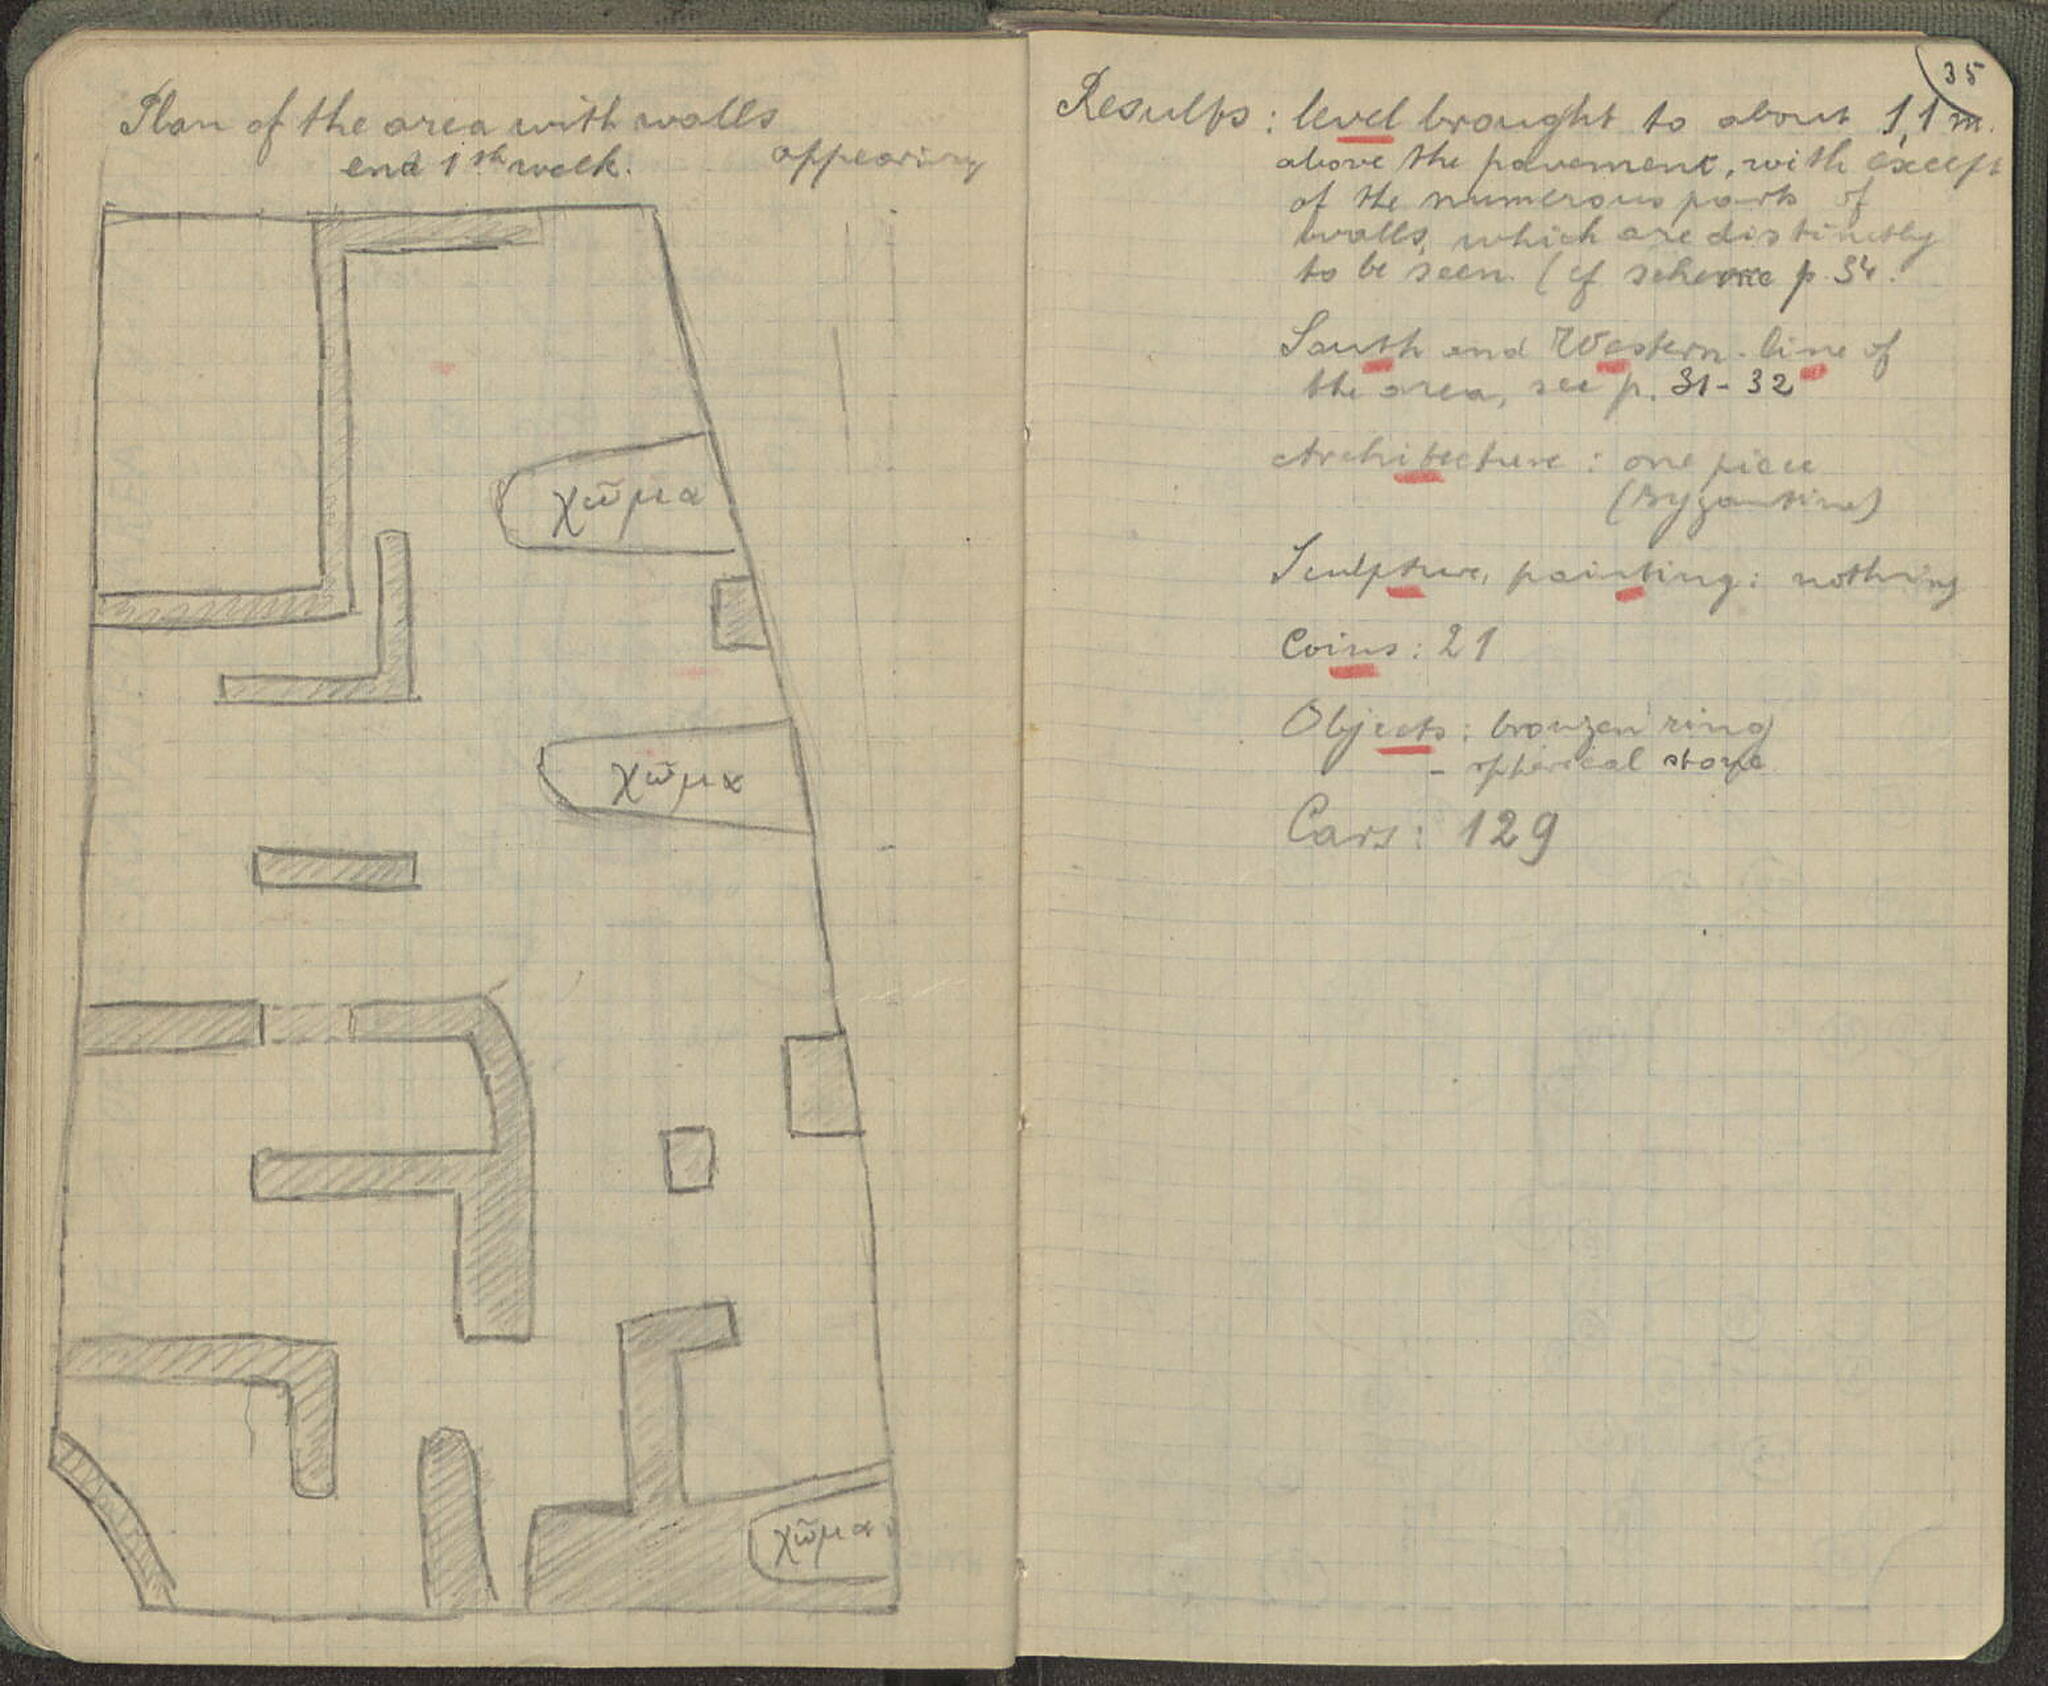 Plan of the area with walls
appearing
end 1th week.
χῶμα
χῶμα
χῶμα
35
Results: level brought to about 1,1 m.
above the pavement, with except
of the numerous parts of
walls, which are distinctly
to be seen. (cf scheme p. 34.
South and Western line of
the area, see p. 31-32
Architecture: one piece
(Byzantine)
Sculpture, painting: nothing
Coins: 21
Objects: bronzen ring
- spherical stone
Cars: 129